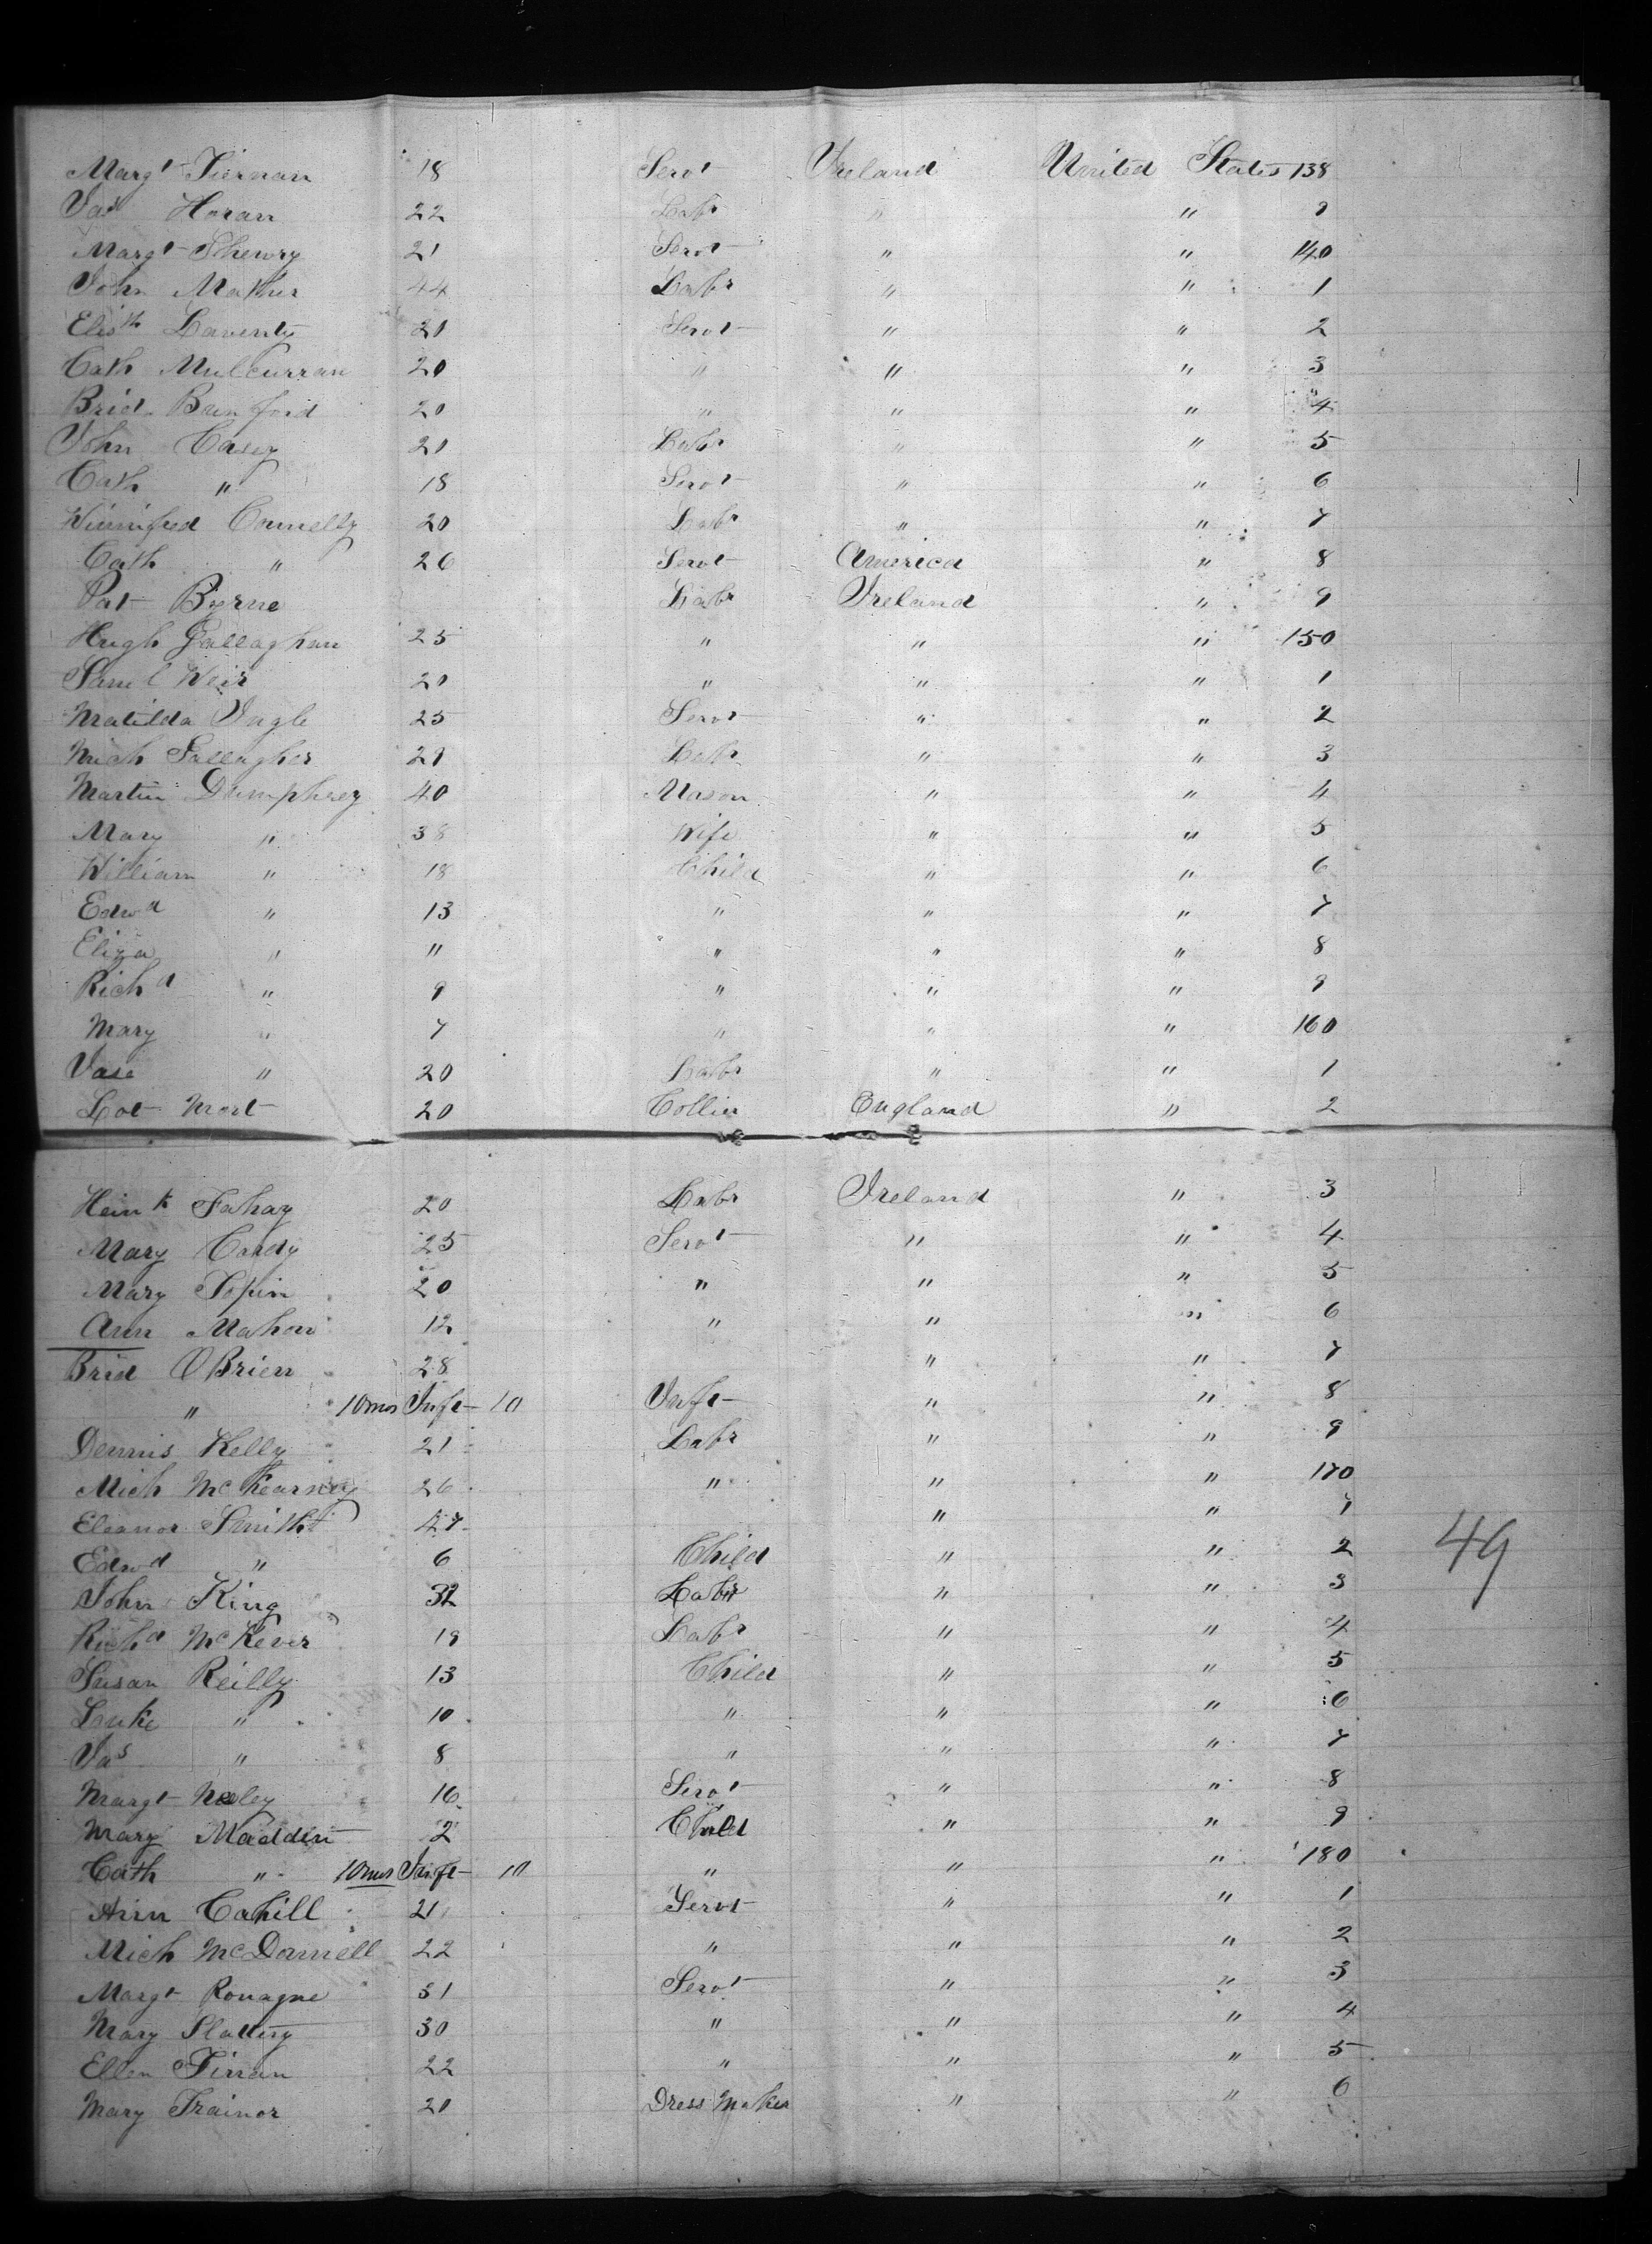 Margt Tiernan 18 Servt Ireland United States 138
Jas Horan 22 Labr " " 9
Margt Shewry 21 Servt " " 140
John Mather 44 Labr " " 1
Elisth Laventy 20 Servt " " 2
Cath Mulcurran 20 " " " 3
Brid Bunford 20 " " " 4
John Casey 20 Labr " " 5
Cath " 18 Servt " " 6
Winnifred Connelly 20 Labr " " 7
Cath " 26 Servt America " 8
Pat Byrne Labr Ireland " 9
Hugh Gallaghan 25 " " " 150
Saml Weir 20 " " " 1
Matilda 25 Servt " " 2
Mich Gallagher 21 Labr " " 3
Martin Dumphrey 40 Mason " " 4
Mary " 38 Wife " " 5
William " 18 Child " " 6
Edwd " 13 " " " 7
Eliza " 11 " " " 8
Richd " 9 " " " 9
Mary " 7 " " " 160
Jase " 20 Labr " " 1
Lot Mort 20 Collier England " 2
Fahay 20 Labr Ireland " 3
Mary Cardy 25 Servt " " 4
Mary Topin 20 " " " 5
Ann Mahon 12 " " " 6
Brid OBrien 28 " " 7
" 10mos Inft 10 Inft " " 8
Dennis Kelly 21 Labr " " 9
Mich McKearney 26 " " " 170
Eleanor Smith 47 " " 1
Edwd " 6 Child " " 2
John King 32 Labr " " 3
49
Richd McKever 19 Labr " " 4
Susan Reilly 13 Child " " 5
Luke " 10 " " " 6
Jas " 8 " " " 7
Margt Neeley 16 Servt " " 8
Mary Madden 2 Child " " 9
Cath " 10mos Inft 10 " " " 180
Ann Cahill 21 Servt " " 1
Mich McDannell 22 " " " 2
Margt Ronagne 31 Servt " " 3
Mary Slattery 30 " " " 4
Ellen Tirran 22 " " " 5
Mary Trainor 20 Dress Maker " " 6